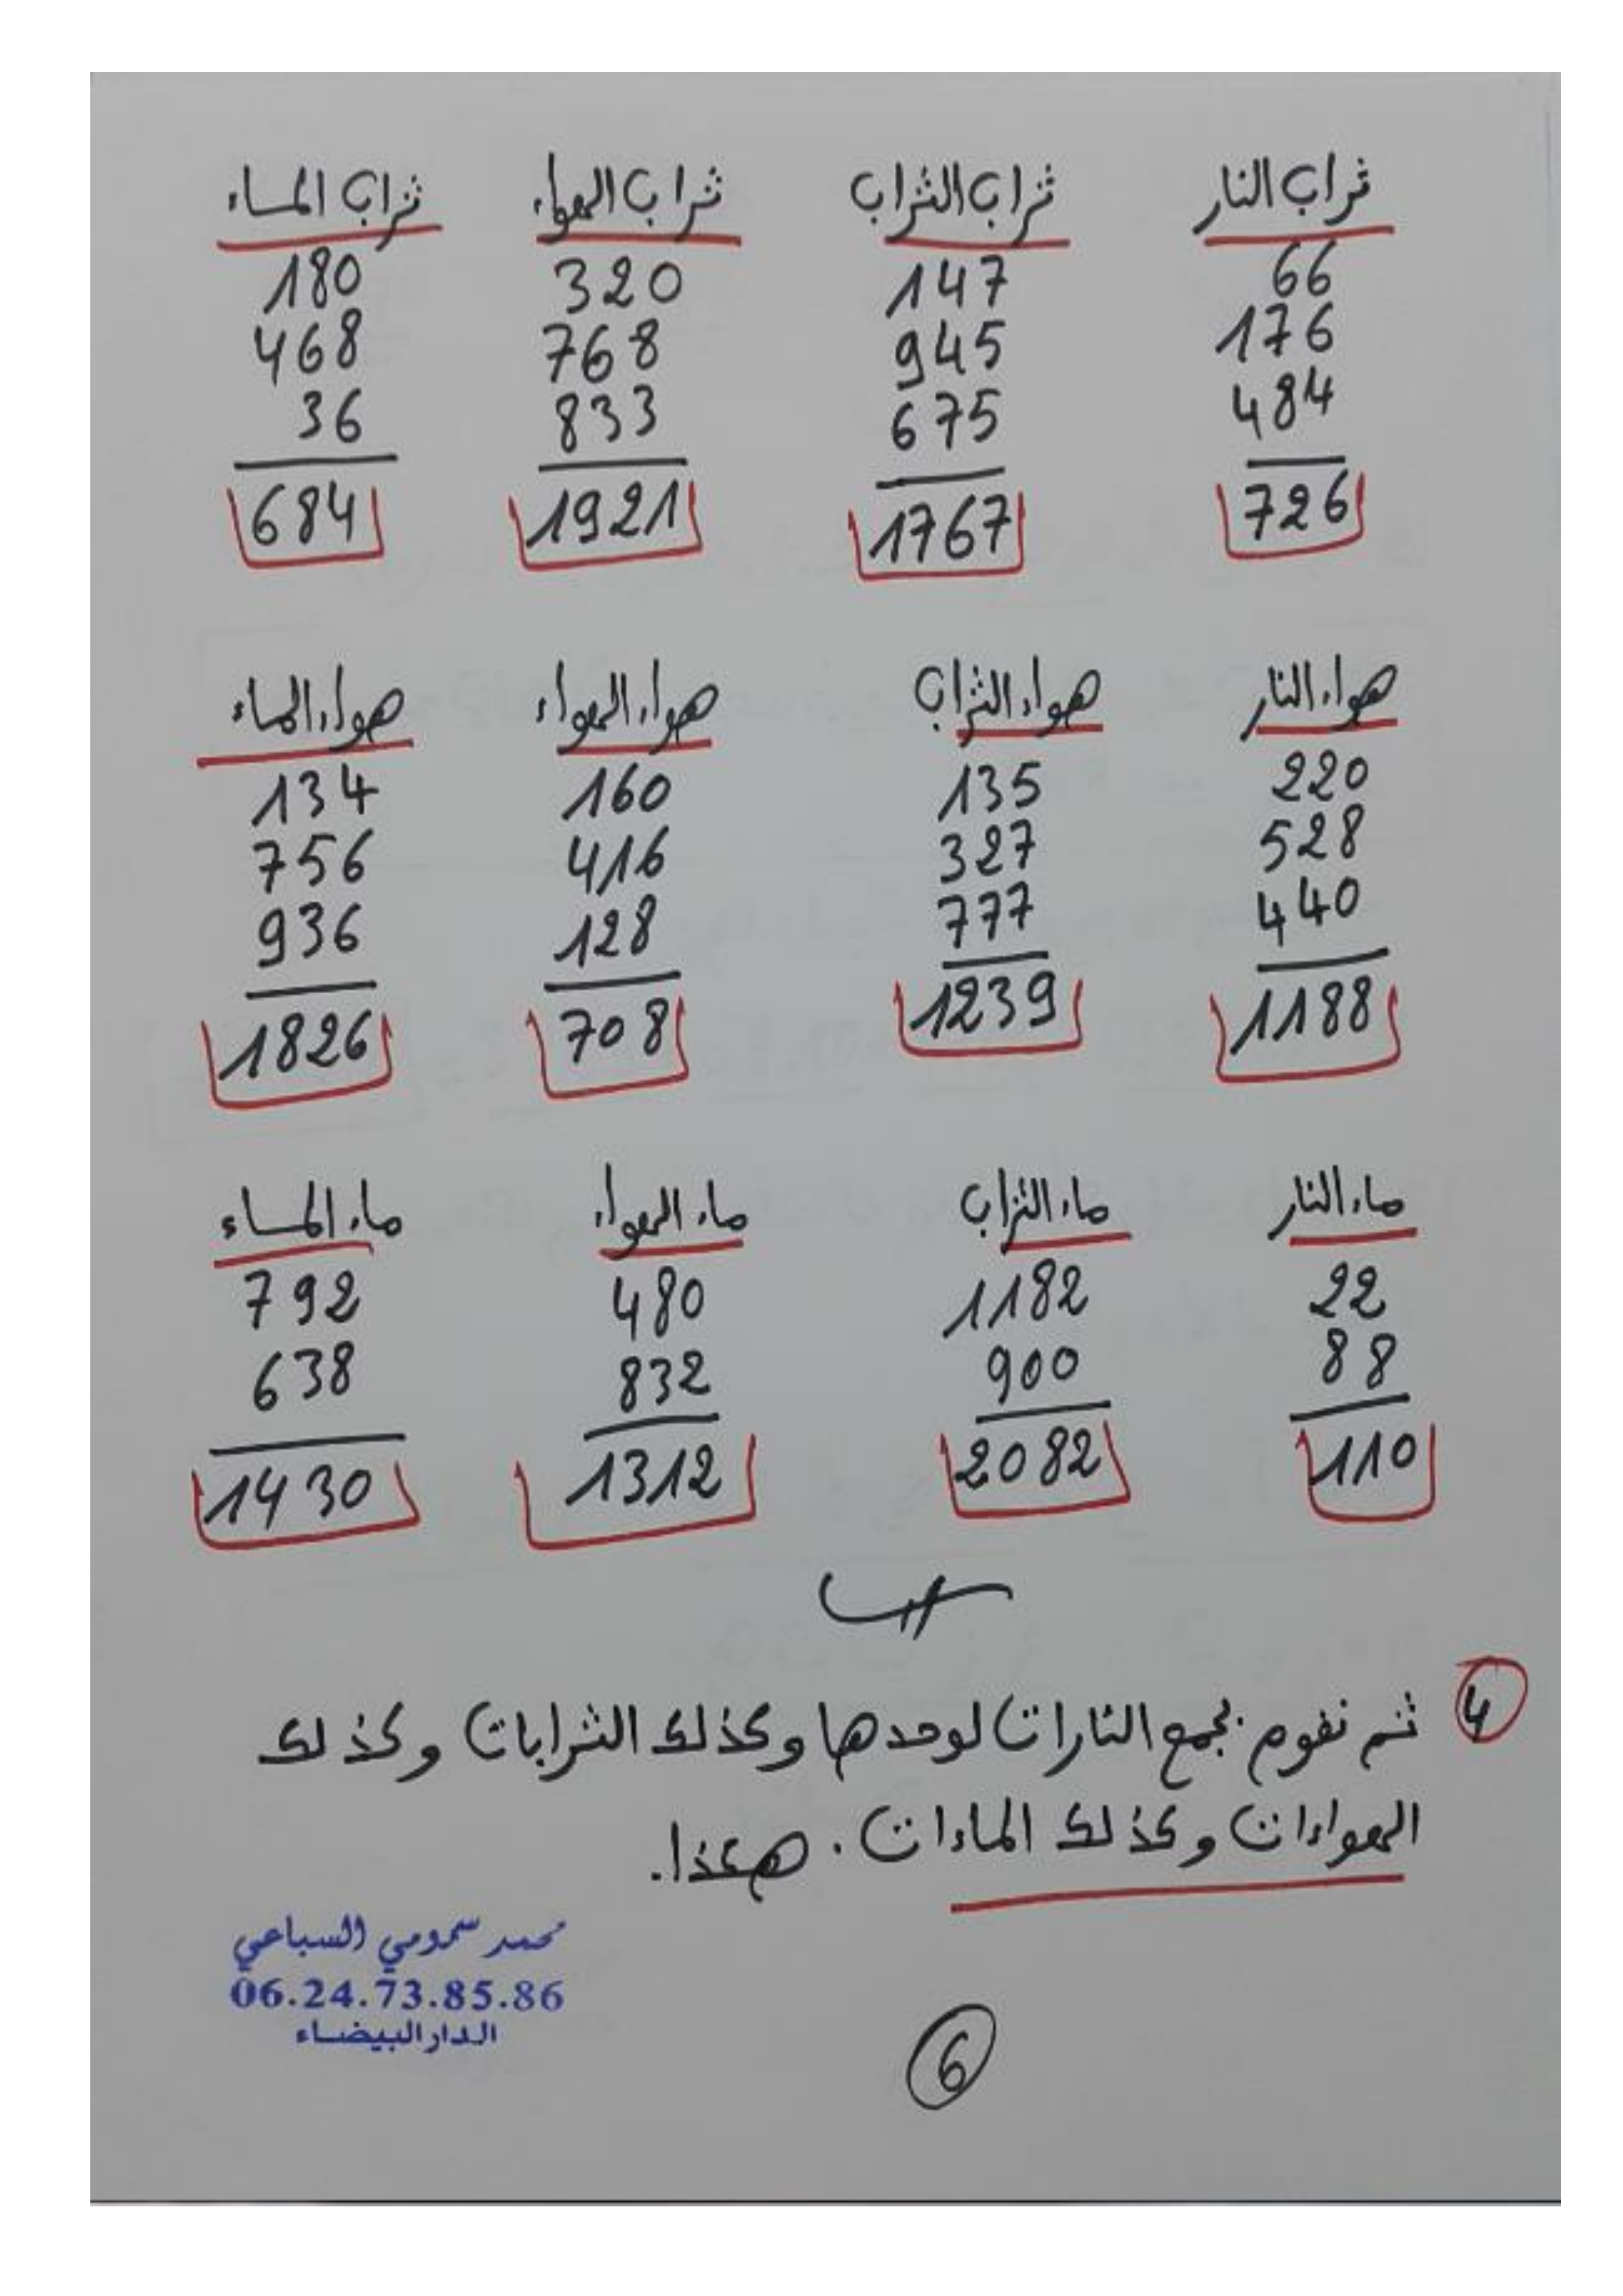 تراب النار تراب التراب تراب الهواء تراب الماء
66 147 320 180
176 945 768 468
484 675 833 36
726 1767 1921 684
هواء النار هواء التراب هواء الهواء هواء الماء
220 135 160 134
528 327 416 756
440 777 128 936
1188 1239 708 1826
ماء النار ماء التراب ماء الهواء ماء الماء
22 1182 480 792
88 900 832 638
110 2082 1312 1430
4 ثم نقوم بجمع النارات لوحدها وكذلك الترابات وكذلك
الهواءات وكذلك الماءات. هكذا.
محمد سمومي السباعي
06.24.73.85.86
الدار البيضاء
6